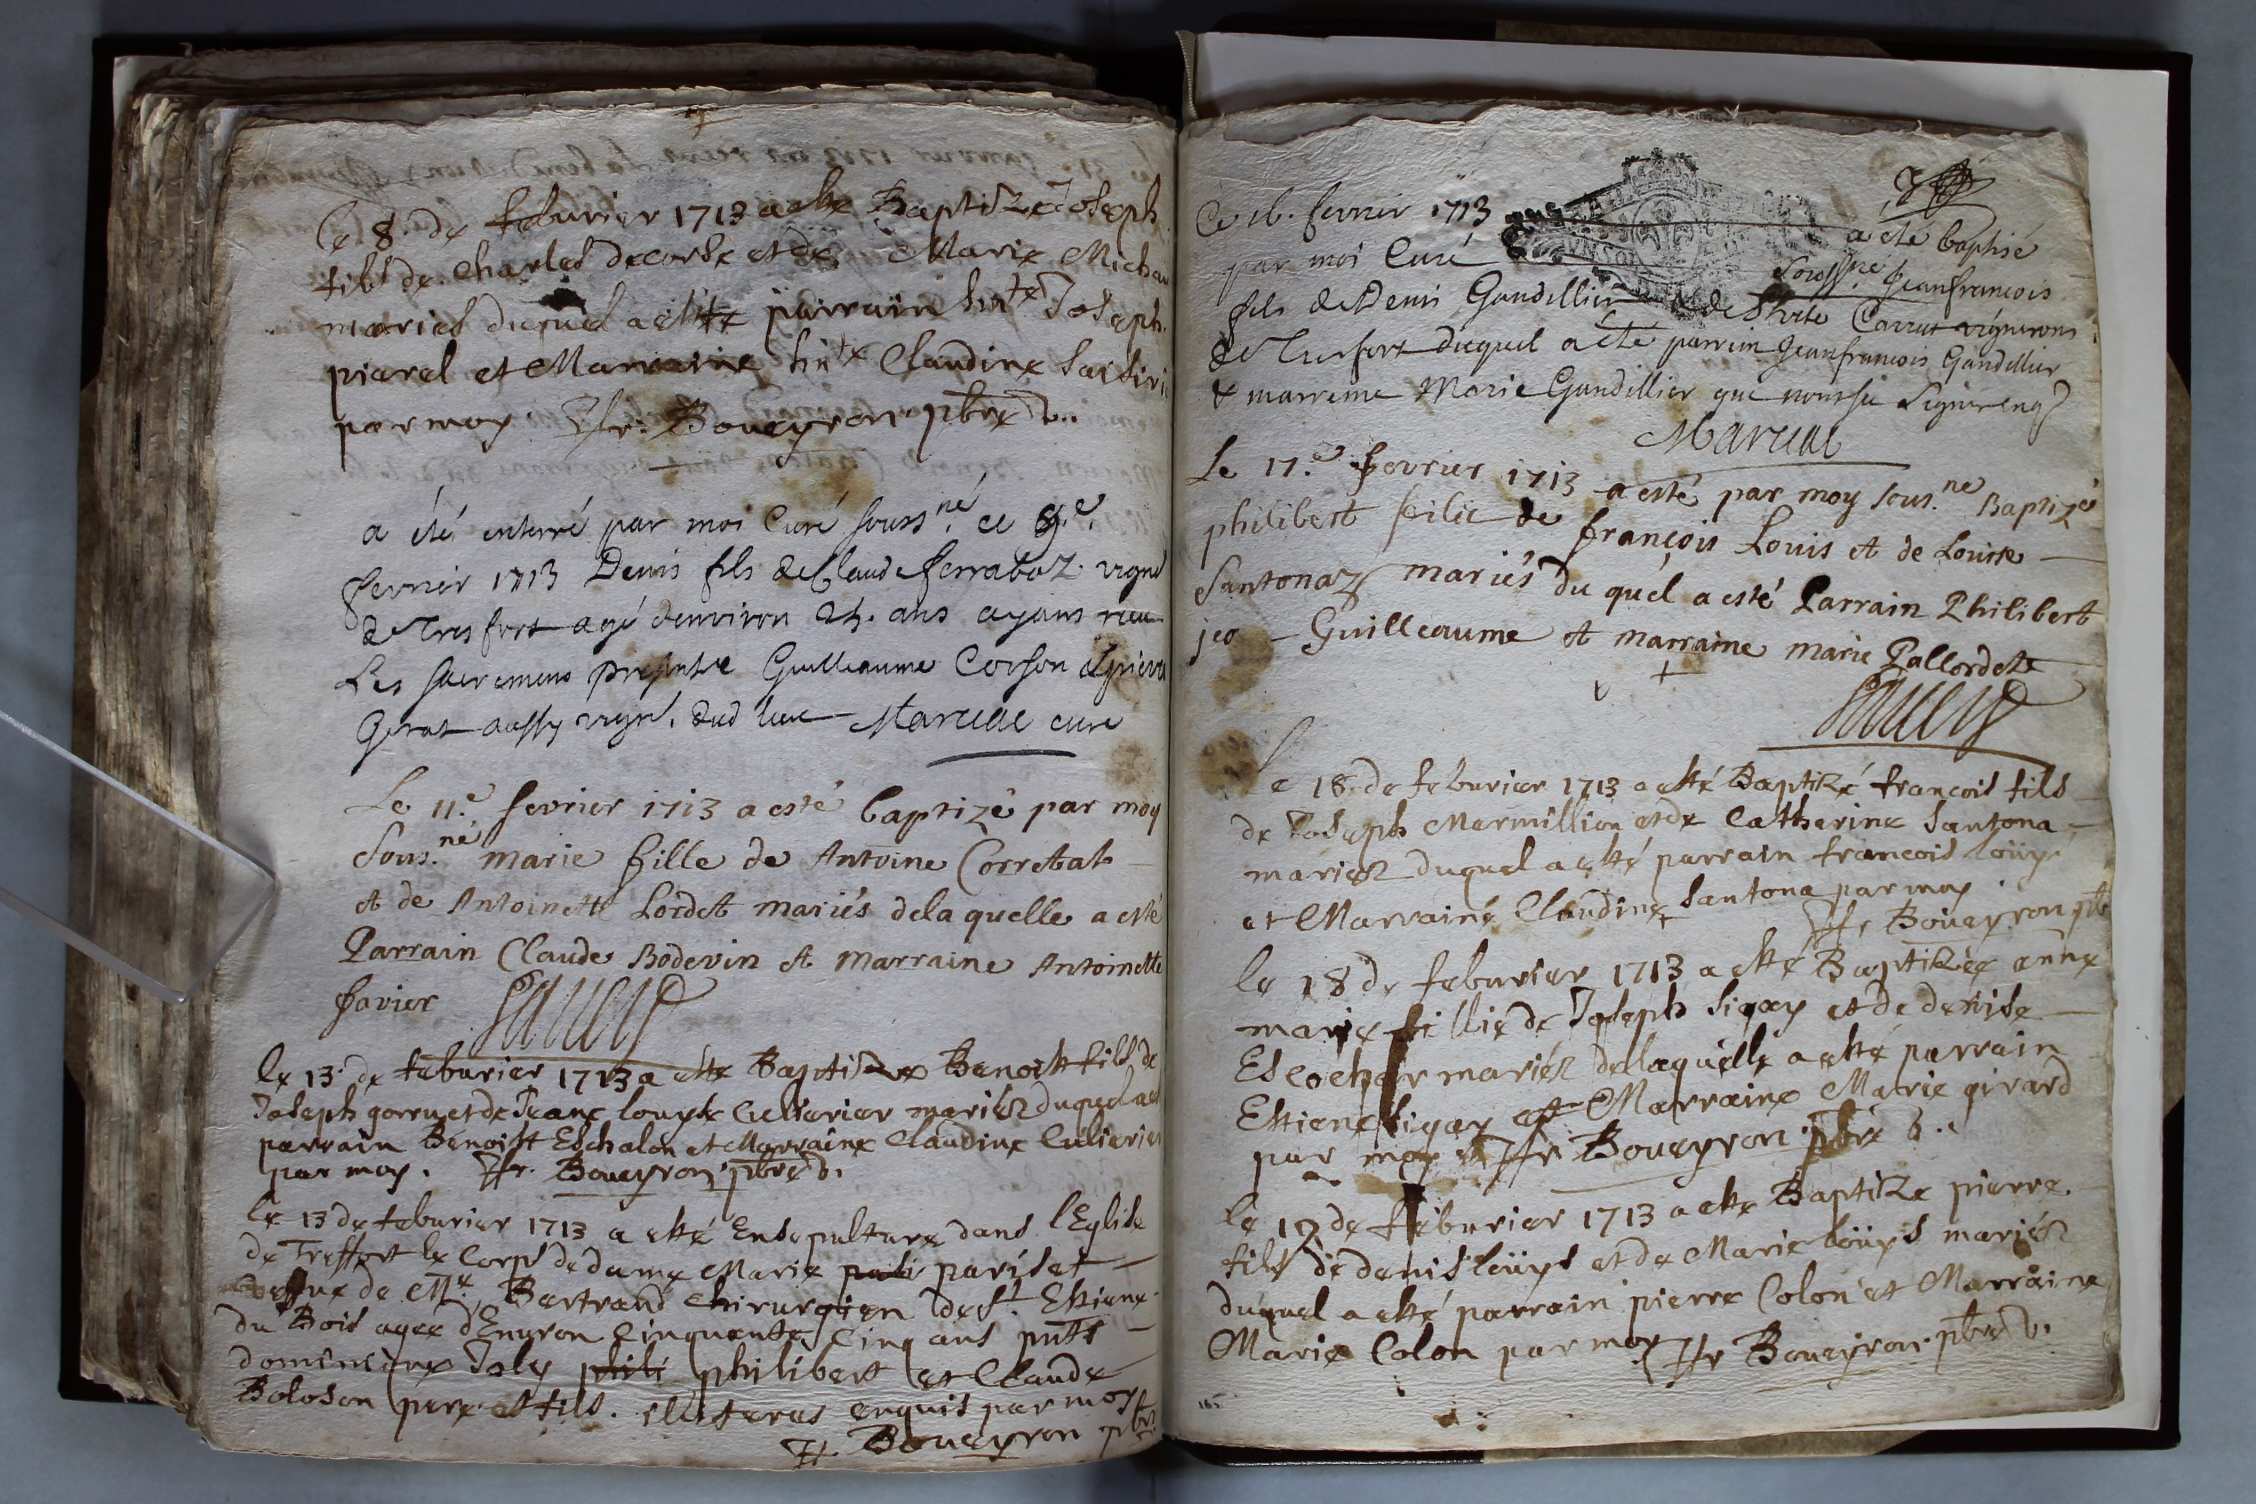 Le 8. de feburier 1713 a este Baptize Joseph
fils de Charles decorbe et de Marie Michau
maries duquel a este parrain hn^te Joseph
piarel et Marraine hn^te Claudine
par moy Fr. Boueyron pbre v..
a été enterré par moi Curé souss^né. ce 9^e.
fevrier 1713 Denis fils de Claude ferraboz vign
de Tresfort agé denviron ans ayant receu
Les sacremens Guilleaume Corson
Girat aussy vign. dud lieu Marueal curé
Le 11^e. fevrier 1713 a esté baptizé par moy
sous.^né marie fille de Antoine Corretbat
et de Antoinette Lordet mariés de la quelle a esté
Parrain Claude Bodevin et Marraine Antoinette
favier
le 13. de feburier 1713 a este Baptize Benoist fils de
Joseph gorru et de Jeane louyse Cuilierier mariez duquel a es
parrain Benoist Eschalon et Marraine Claudine Cuilierier
par moy. Fr. Boueyron pbre v.
le 13 de feburier 1713 a esté Ensepulture dans l'Eglise
de Treffort le Corps de dame Marie pariset
vefue de M^e. Bertrand chirurgien de S^t. Estiene
du Bois agee d'Enuyron Cinquante Cinq ans pnts
dominique Joly philibert et Claude
Boloson pere et fils. illiteres enquis par moy
Fr. Boueyron pbre
Ce 16. fevrier 1713 a eté baptisé
par moi Curé souss^né. Jeanfrancois
fils de Denis Gandillier & de Carrut vignerons
de Tresfort duquel a été parrin Jeanfrancois Gandillier
& marreine Marie Gandillier qui nont sceu signer enq
Marueal
Le 17.^e fevrier 1713 a esté par moy sous.^né Baptizé
philibert de françois Louis et de Louise
Santonaz mariés du quel a esté Parrain Philibert
Guilleaume et marraine marie Pallordete
Le 18. de feburier 1713 a esté Baptizé francois fils
de Joseph Mermillion et de Catherine Santona
mariez duquel a esté parrain francois loüys
et Marrainé Claudine Santona par moy
Fr. Boüeyron pbr
le 18 de feburier 1713 a esté Baptizée anne
marie fillie de Joseph sigay et de denise
Escochar mariéz de laquelle a esté parrain
Estiene sigay et Marraine Marie girard
par moy Fr Boueyron pbre v.
le 19 de feburier 1713 a este Baptize pierre
fils de denis loüys et de Marie loüys mariéz
duquel a esté parrain pierre Colon et Marraine
Marie Colon par moy Fr Boueyron pbre v.
165